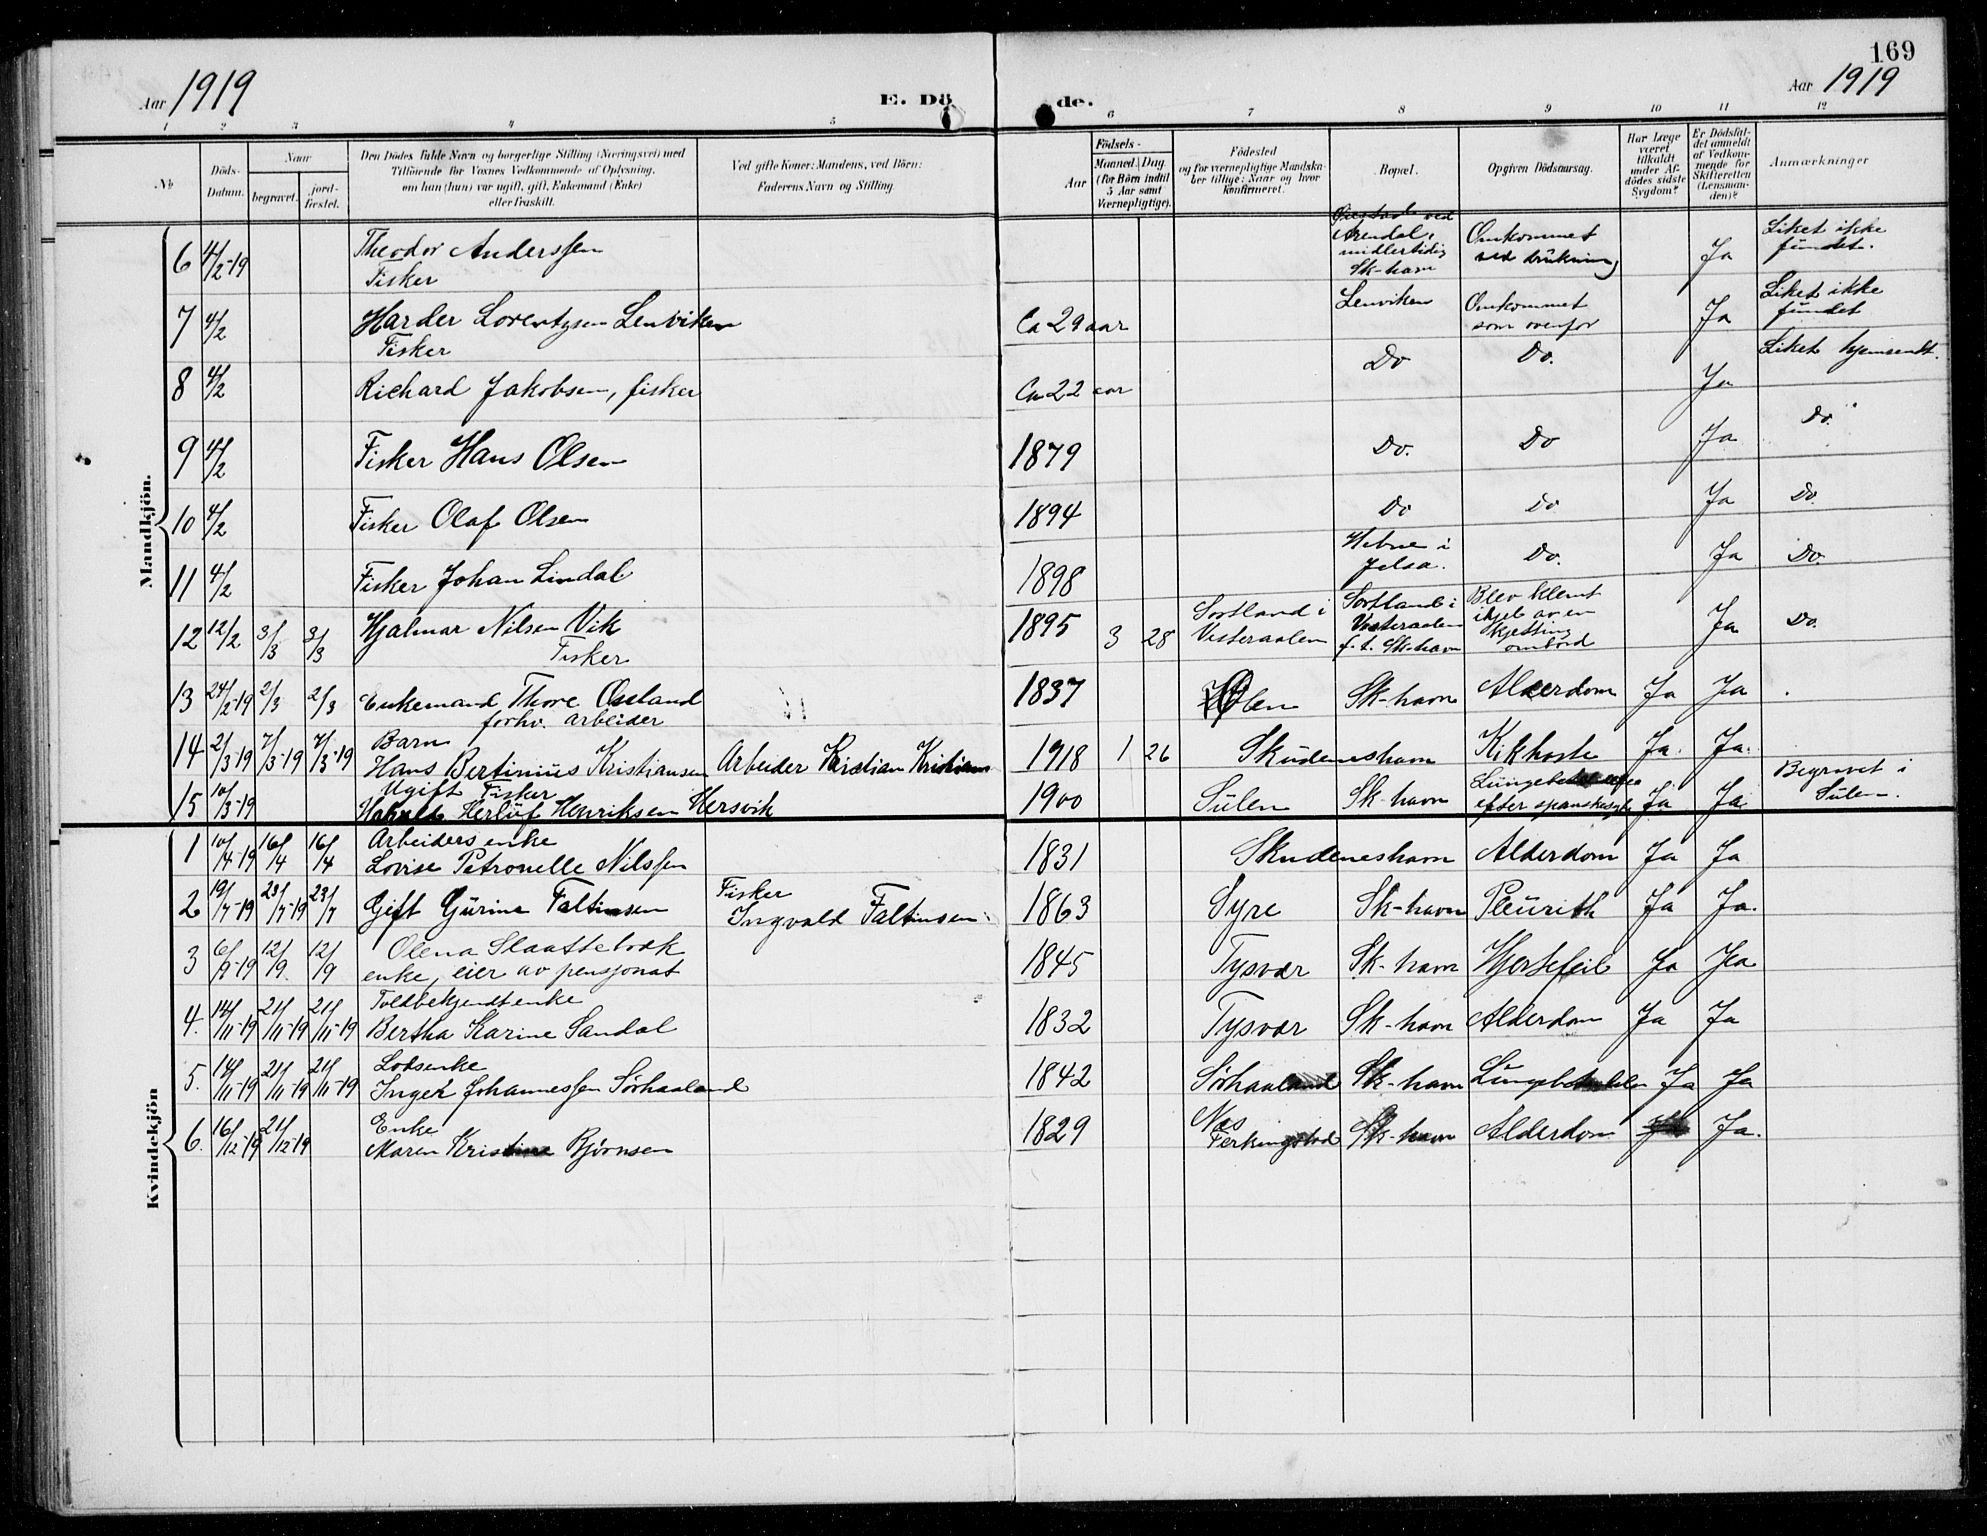 169
Aar 1919
E. Dö
de.
Aar 1919
1 2 3 4 5 6 7 8 9 10 11 12
No
Döds-Datum.
Naar
begravet.
jordfæstet.
Den Dödes fulde Navn og borgerlige Stilling (Næringsvei) med Tilföiende for Voxnes Vedkommende af Oplysning, om han (hun) var ugift, gift, Enkemand (Enke) eller fraskilt.
Ved gifte Koner: Mandens, ved Börn: Faderens Navn og Stilling.
Födsels-
Aar
Maaned. Dag.
(for Börn indtil 5 Aar samt Værnepligtige).
Födested og for værnepligtige Mandskaber tillige: Naar og hvor konfirmeret.
Bopæl.
Opgiven Dödsaarsag.
Har Læge været tilkaldt under Afdödes sidste Sygdom?
Er Dödsfaldet anmeldt af Vedkommende for Skifteretten (Lensmanden)?
Anmærkninger
Mandkjön.
6 4/2-19 Theodor Anderssen Fisker ved Arendal, midlertidig Sk-havn Omkommet ved drukning Ja Liket ikke fundet.
7 4/2 Harder Lorentzen Lenviken Fisker Ca 29 aar Lenviken Omkommet som ovenfor Ja Liket ikke fundet
8 4/2 Richard Jakobsen, fisker Ca 22 aar Do Do. Ja Liket hjemsendt.
9 4/2 Fisker Hans Olsen 1879 Do. Do Ja Do.
10 4/2 Fisker Olaf Olsen 1894 Do Do Ja Do.
11 4/2 Fisker Johan Lindal 1898 Hebne i Jelsa. Do. Ja Do.
12 12/2 3/3 3/3 Hjalmar Nilsen Vik Fisker 1895 3 28 Sortland i Vesteraalen Sortland i Vesteraalen f. t. Sk-havn Blev klemt ihjel av en Kjetting ombord Ja Do.
13 24/2-19 2/3 2/3 Enkemand Thore Øssland forhv. arbeider 1837 Ølen Sk-havn Alderdom Ja Ja
14 2/3-19 7/3-19 7/3-19 Barn Hans Bertinius Kristiansen Arbeider Kristian Kristiansen 1918 1 26 Skudeneshavn Kikhoste Ja. Ja.
15 10/3-19 Ugift Fisker Herluf Henriksen Hersvik 1900 Sulen Sk-havn efter spanskesyke Ja Ja Begravet i Sulen.
Kvindekjön
1 10/4-19 16/4 16/4 Arbeiders enke Lovise Petronelle Nilssen 1831 Skudeneshavn Alderdom Ja Ja
2 19/7-19 23/7-19 23/7 Gift Gurine Faltinsen Fisker Ingvald Faltinsen 1863 Syre Sk-havn Pleurith Ja Ja.
3 6/9-19 12/9. 12/9 Olena Slaattebræk enke, eier av pensjonat 1845 Tysvær Sk-havn Hjertefeil Ja Ja
4. 14/11-19 21/11-19 21/11-19 Toldbetjendtenke Bertha Karine Sandal 1832 Tysvær Sk-havn Alderdom Ja Ja
5. 14/11-19 21/11-19 21/11-19 Lodsenke Inger Johannessen Sørhaaland 1842 Sørhaaland Sk-havn Ja Ja
6. 16/12-19 21/12-19 Enke Maren Kristine Bjørnsen 1829 Nes Ferkingstad Sk-havn Alderdom Ja.